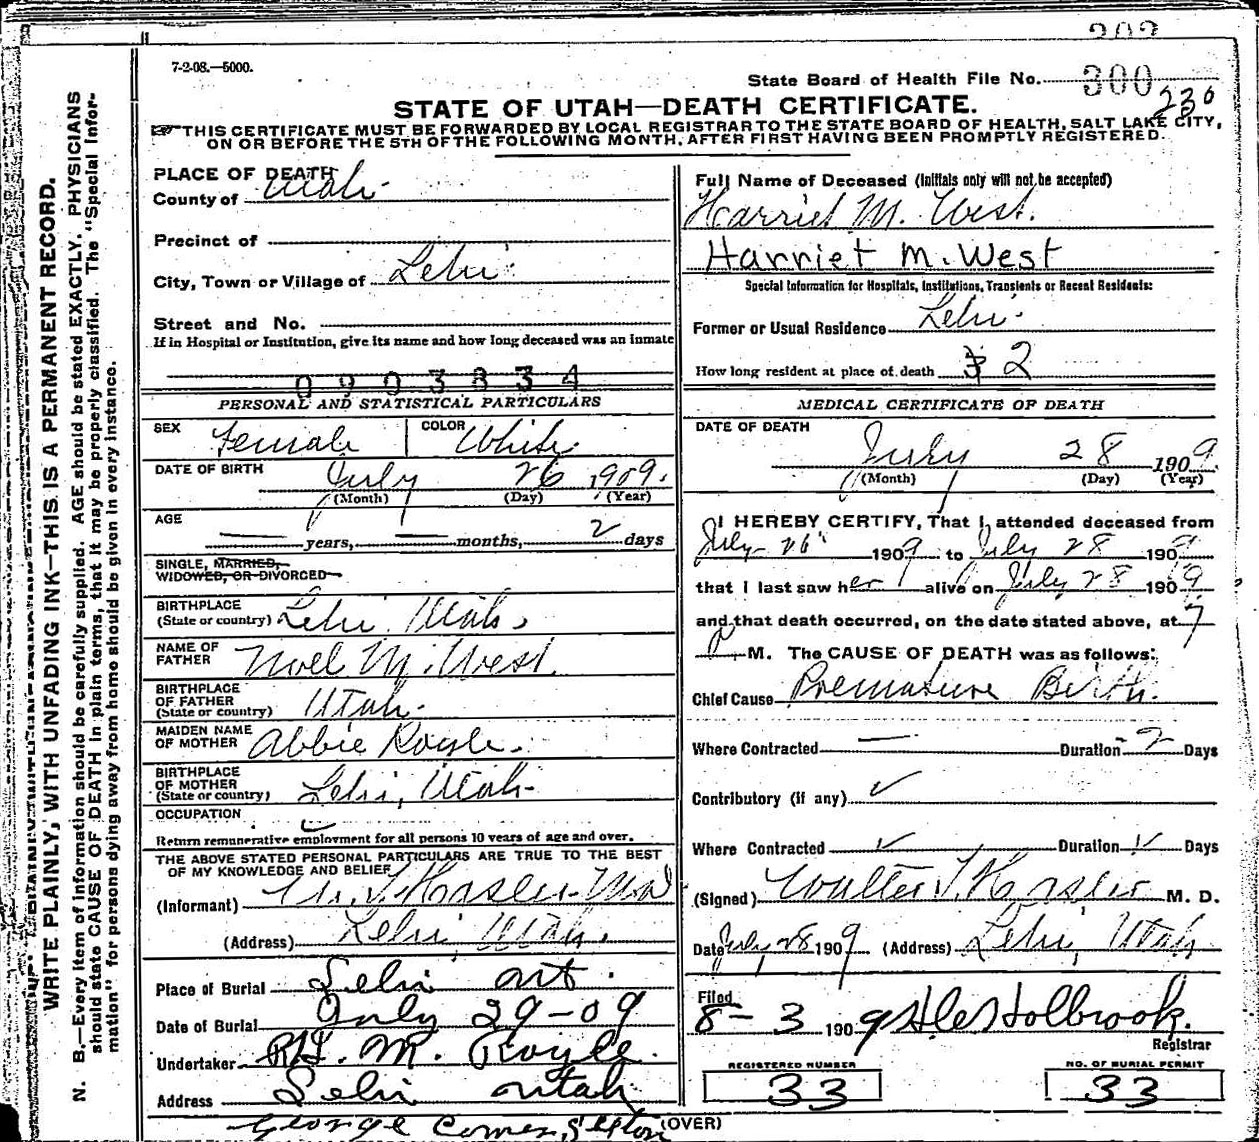 303
7-2-08.—5000.
State Board of Health File No. 300
230
STATE OF UTAH—DEATH CERTIFICATE.
☞THIS CERTIFICATE MUST BE FORWARDED BY LOCAL REGISTRAR TO THE STATE BOARD OF HEALTH, SALT LAKE CITY,
ON OR BEFORE THE 5TH OF THE FOLLOWING MONTH, AFTER FIRST HAVING BEEN PROMPTLY REGISTERED.
WRITE PLAINLY, WITH UNFADING INK—THIS IS A PERMANENT RECORD.
N. B.—Every item of information should be carefully supplied. AGE should be stated EXACTLY. PHYSICIANS
should state CAUSE OF DEATH in plain terms, that it may be properly classified. The "Special Infor-
mation" for persons dying away from home should be given in every instance.
PLACE OF DEATH
County of Utah
Precinct of
City, Town or Village of Lehi
Street and No.
If in Hospital or Institution, give its name and how long deceased was an inmate
0903834
PERSONAL AND STATISTICAL PARTICULARS
SEX Female COLOR White
DATE OF BIRTH July 26 1909.
(Month) (Day) (Year)
AGE
— years, — months, 2 days
SINGLE, MARRIED,
WIDOWED, OR DIVORCED
BIRTHPLACE
(State or country) Lehi Utah
NAME OF
FATHER Noel M. West.
BIRTHPLACE
OF FATHER
(State or country) Utah.
MAIDEN NAME
OF MOTHER Abbie Royle.
BIRTHPLACE
OF MOTHER
(State or country) Lehi, Utah.
OCCUPATION
Return remunerative employment for all persons 10 years of age and over.
THE ABOVE STATED PERSONAL PARTICULARS ARE TRUE TO THE BEST
OF MY KNOWLEDGE AND BELIEF
(Informant) W. T. Hasler MD
(Address) Lehi, Utah.
Place of Burial Lehi ut.
Date of Burial July 29-09
Undertaker M. Royle.
Address Lehi utah
George Comer, Sexton
(OVER)
Full Name of Deceased (Initials only will not be accepted)
Harriet M. West.
Harriet M. West
Special Information for Hospitals, Institutions, Transients or Recent Residents:
Former or Usual Residence Lehi
How long resident at place of death 2
MEDICAL CERTIFICATE OF DEATH
DATE OF DEATH
July 28 1909
(Month) (Day) (Year)
I HEREBY CERTIFY, That I attended deceased from
July 26 1909 to July 28 1909
that I last saw her alive on July 28 1909
and that death occurred, on the date stated above, at 7
P M. The CAUSE OF DEATH was as follows:
Chief Cause Premature Birth.
Where Contracted — Duration 2 Days
Contributory (if any) ✓
Where Contracted ✓ Duration ✓ Days
(Signed) Walter T. Hasler M. D.
Date July 28 1909 (Address) Lehi, Utah
Filed
8-3 1909 Holbrook.
Registrar
REGISTERED NUMBER NO. OF BURIAL PERMIT
33 33